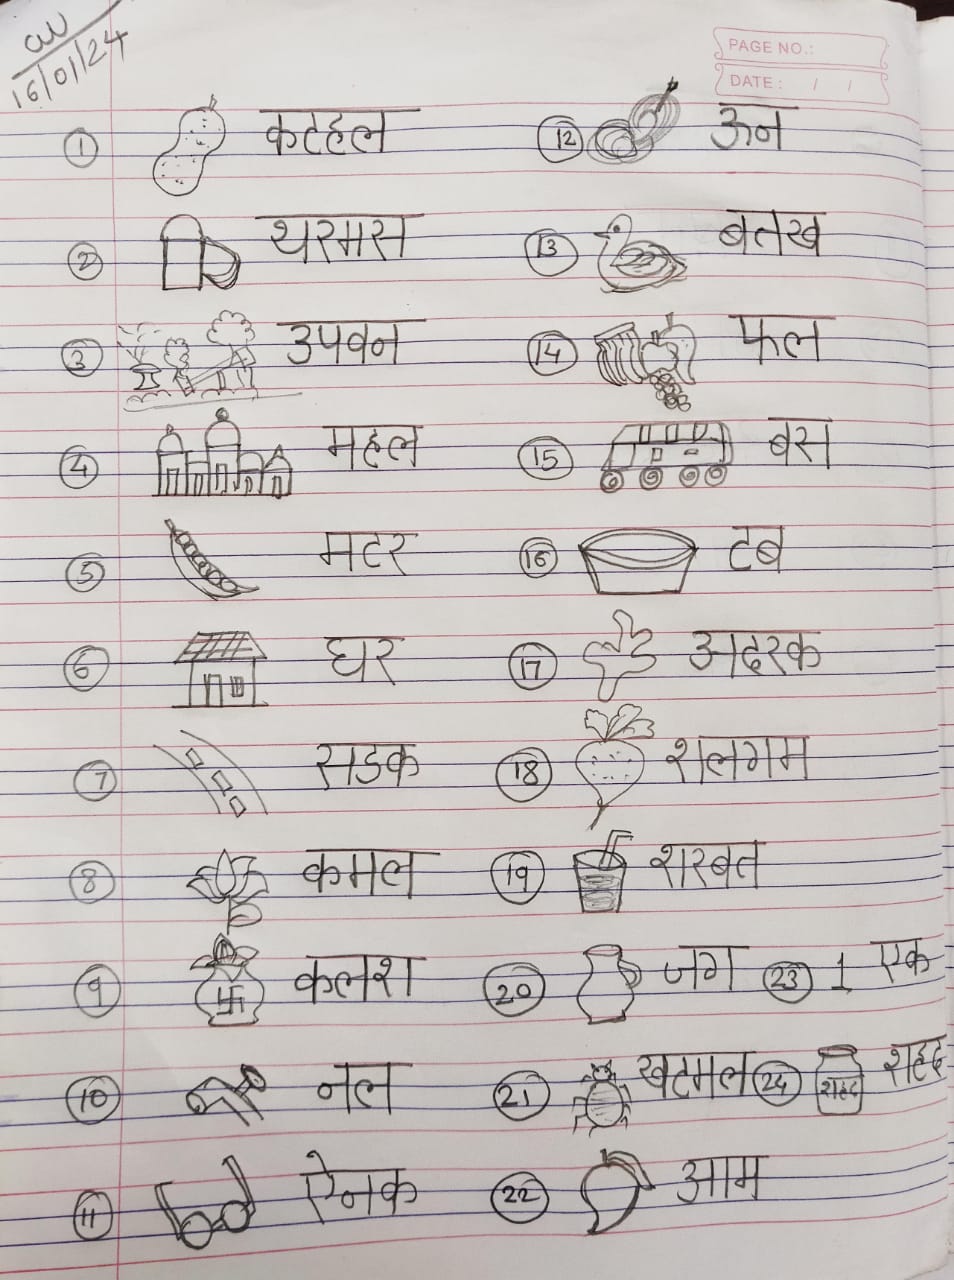 CW
16/01/24
PAGE NO.:
DATE: / /
1 कटहल
2 थरमास
3 उपवन
4 महल
5 मटर
6 घर
7 सडक
8 कमल
9 कलश
10 नल
11 ऐनक
12 ऊन
13 बतख
14 फल
15 बस
16 टब
17 अदरक
18 शलगम
19 शरबत
20 जग
21 खटमल
22 आम
23 1 एक
24 शहद शहद